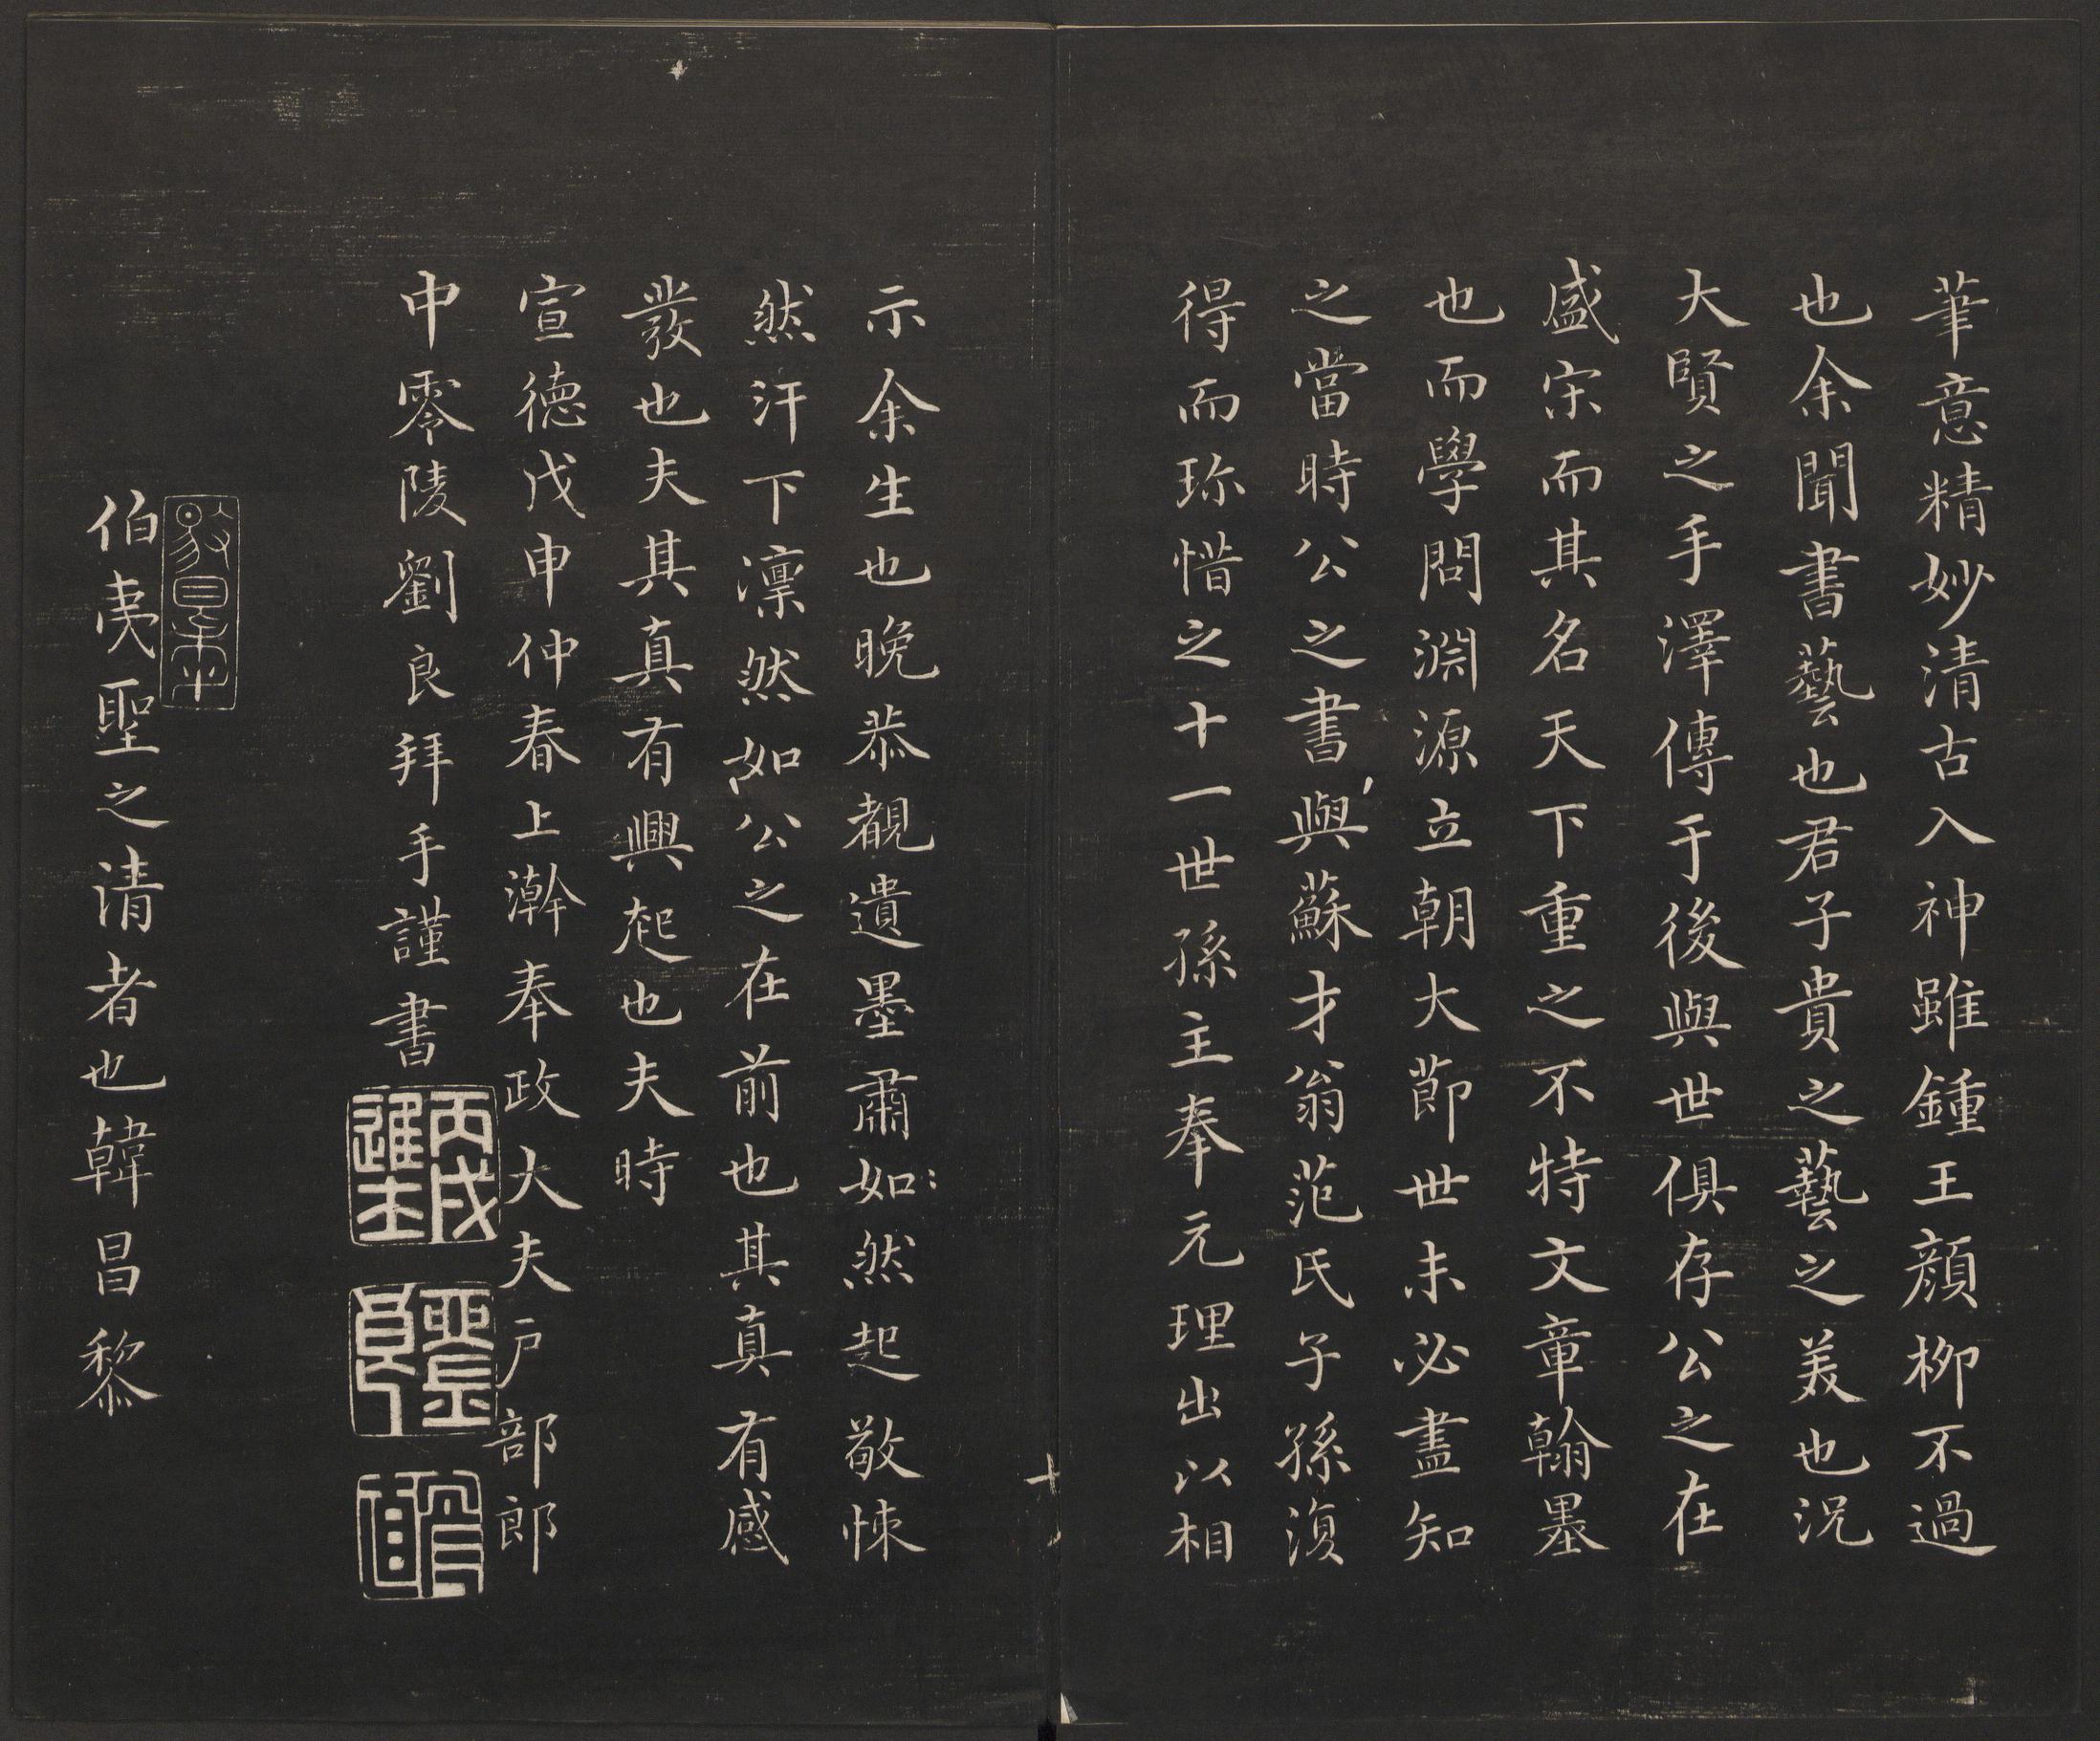 筆意精妙清古入神雖鍾王顏柳不過
也余聞書藝也君子貴之藝之美也況
大賢之手澤傳于後與世俱存公之在
盛宋而其名天下重之不特文章翰墨
也而學問淵源立朝大節世未必盡知
之當時公之書與蘇才翁范氏子孫湏
得而珎惜之十一世孫主奉元理出以相
示余生也晚恭覩遺墨肅如然起敬悚
然汗下凛然如公之在前也其真有感
發也夫其真有興起也夫時
宣德戊申仲春上澣奉政大夫戶部郎
中零陵劉良拜手謹書
丙戌進士
伯夷聖之清者也韓昌黎